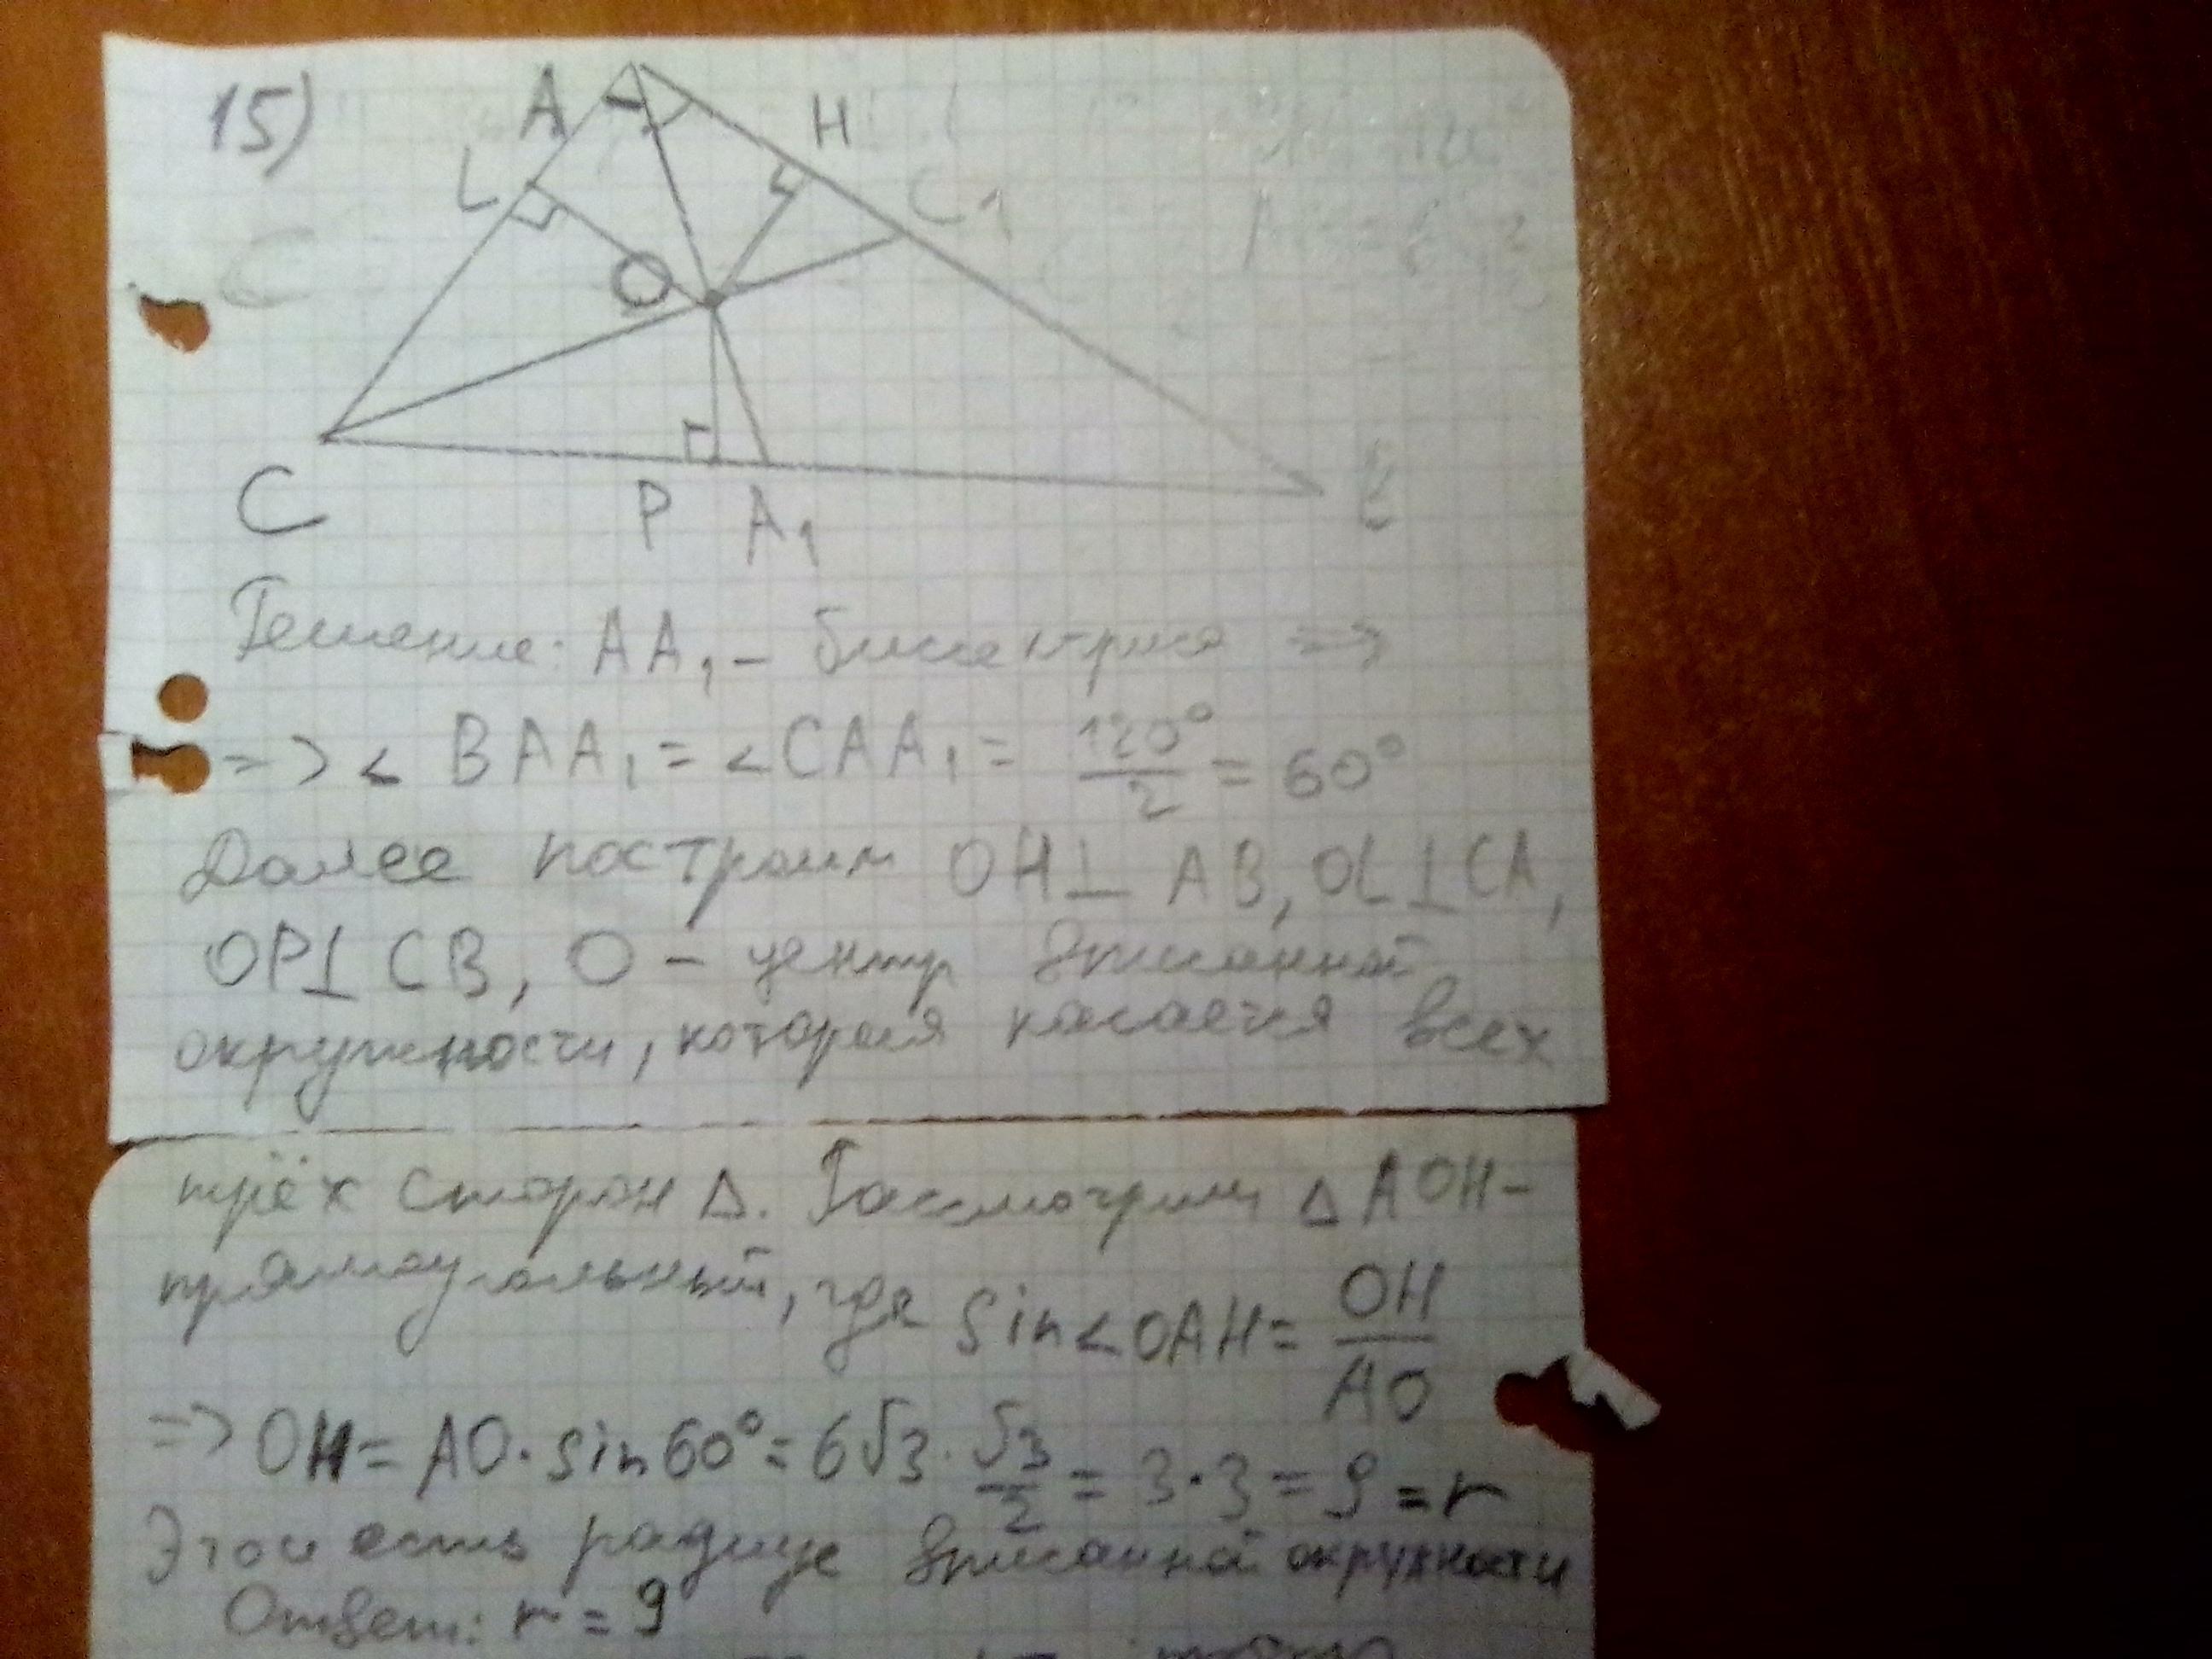 15)
A
H
L
C1
O
C
P
A1
B
Решение: AA1 – биссектриса =>
=> < BAA1 = < CAA1 = 120°/2 = 60°
Далее построим OH⊥ AB, OL⊥CA,
OP⊥ CB, O – центр вписанной
окружности, которая касается всех
трёх сторон Δ. Рассмотрим Δ AOH–
прямоугольный, где sin<OAH = OH/AO
=> OH = AO·sin60° = 6√3·√3/2 = 3·3 = 9 = r
Это и есть радиус вписанной окружности
Ответ: r = 9